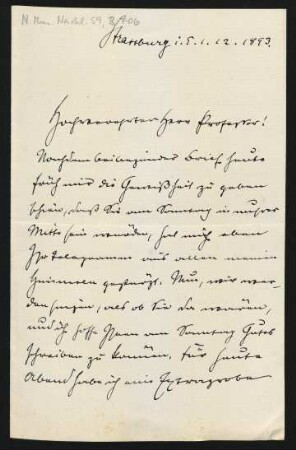 N. Mus. Nachl. 59, B,906
Strassburg i. E. 1. 12. 1893.
Hochverehrter Herr Professor!
Nachdem beiliegender Brief heute
früh mir die Gewißheit zu geben
schien, daß Sie am Sonntag in unsrer
Mitte sein würden, hat mich eben
Ihr Telegramm aus allen meinen
Himmeln gestürzt. Nun, wir wer-
den singen, als ob Sie da wären,
und ich hoffe Ihnen am Sonntag Gutes
schreiben zu können. Für heute
Abend habe ich eine Extraprobe